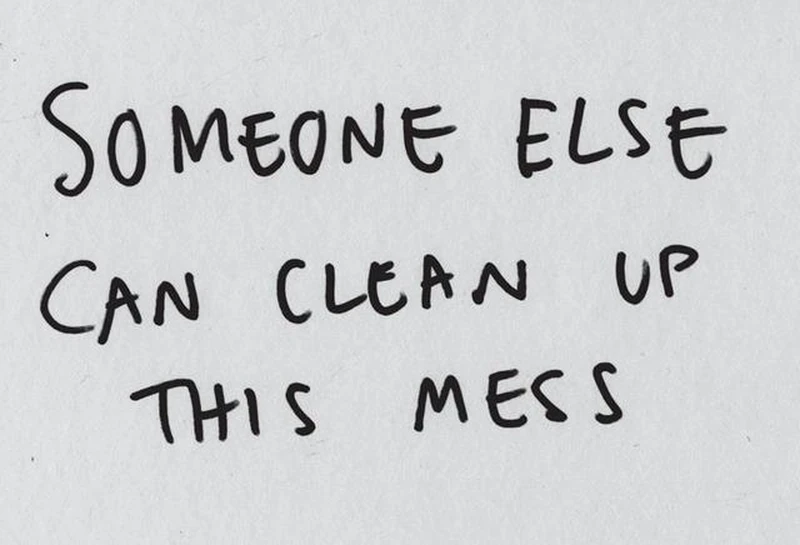 SOMEONE ELSE
CAN CLEAN UP
THIS MESS